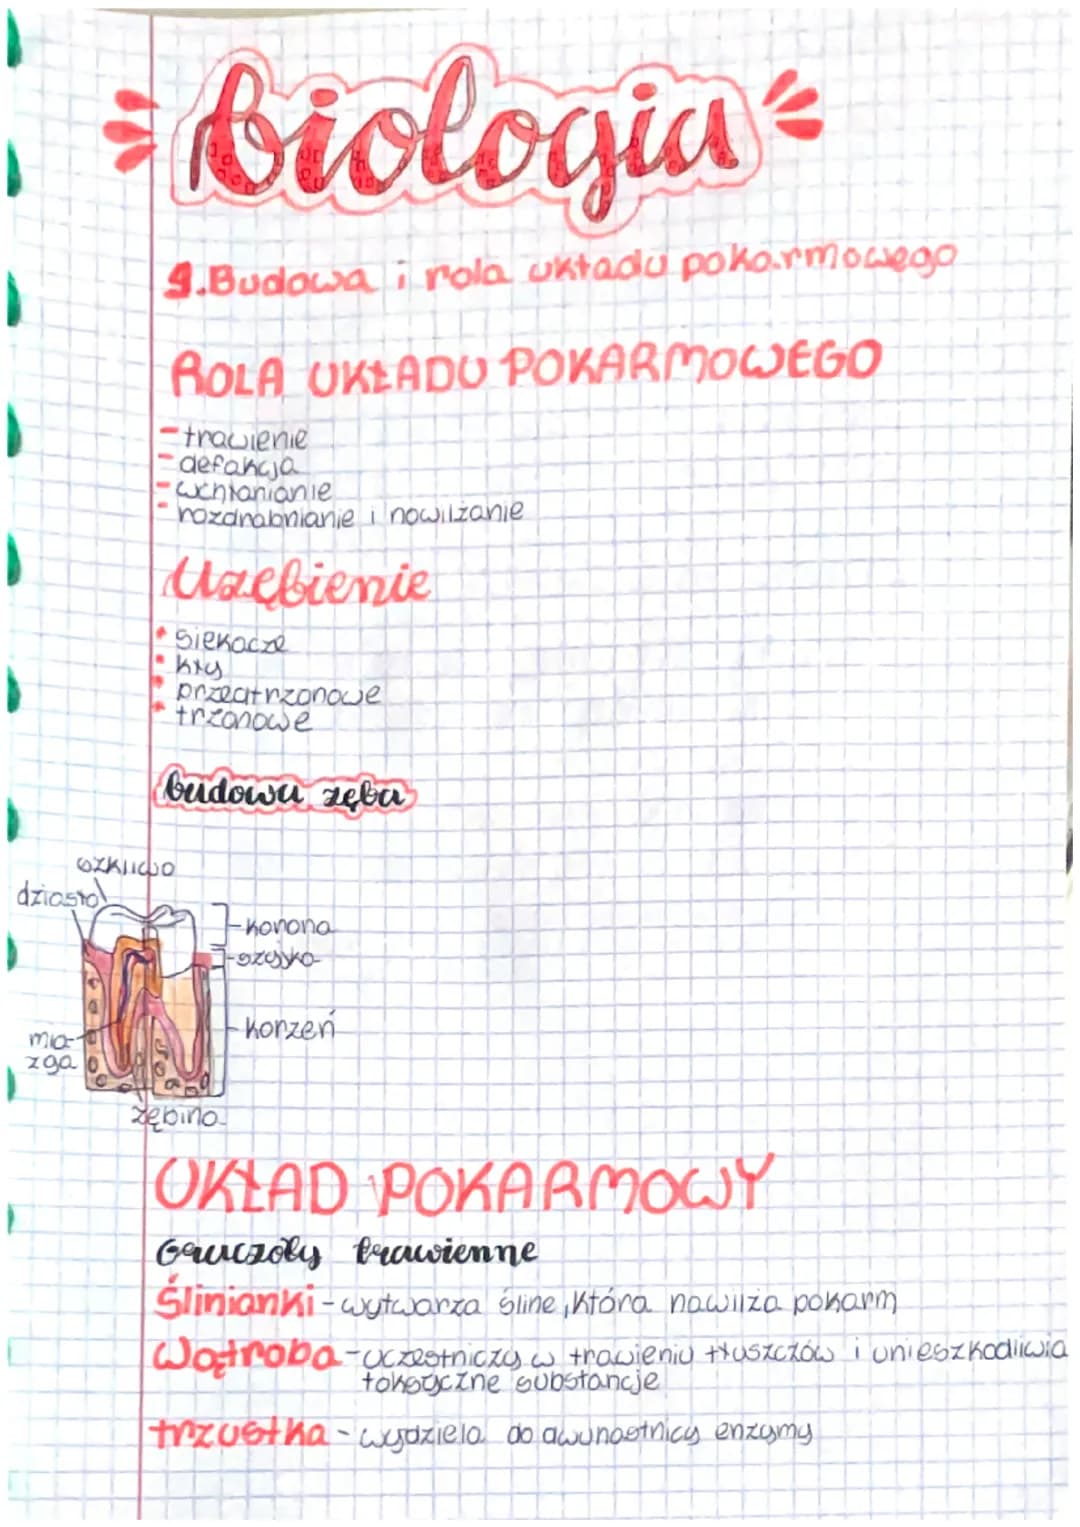 biologia
9. Budowa i rola układu pokarmowego
ROLA UKŁADU POKARMOWEGO
- trawienie
- defakcja
- wchłanianie
- rozdrabnianie i nawilżanie
Uzębienie
• siekacze
• kły
• przedtrzonowe
• trzonowe
budowa zęba
szkliwo
dziąsło
korona
szyjka
korzeń
mia-
zga
zębina
UKŁAD POKARMOWY
Gruczoły trawienne
Ślinianki - wytwarza śline, która nawilża pokarm
Wątroba - uczestniczy w trawieniu tłuszczów i unieszkodliwia
toksyczne substancje
trzustka - wydziela do dwunastnicy enzymy